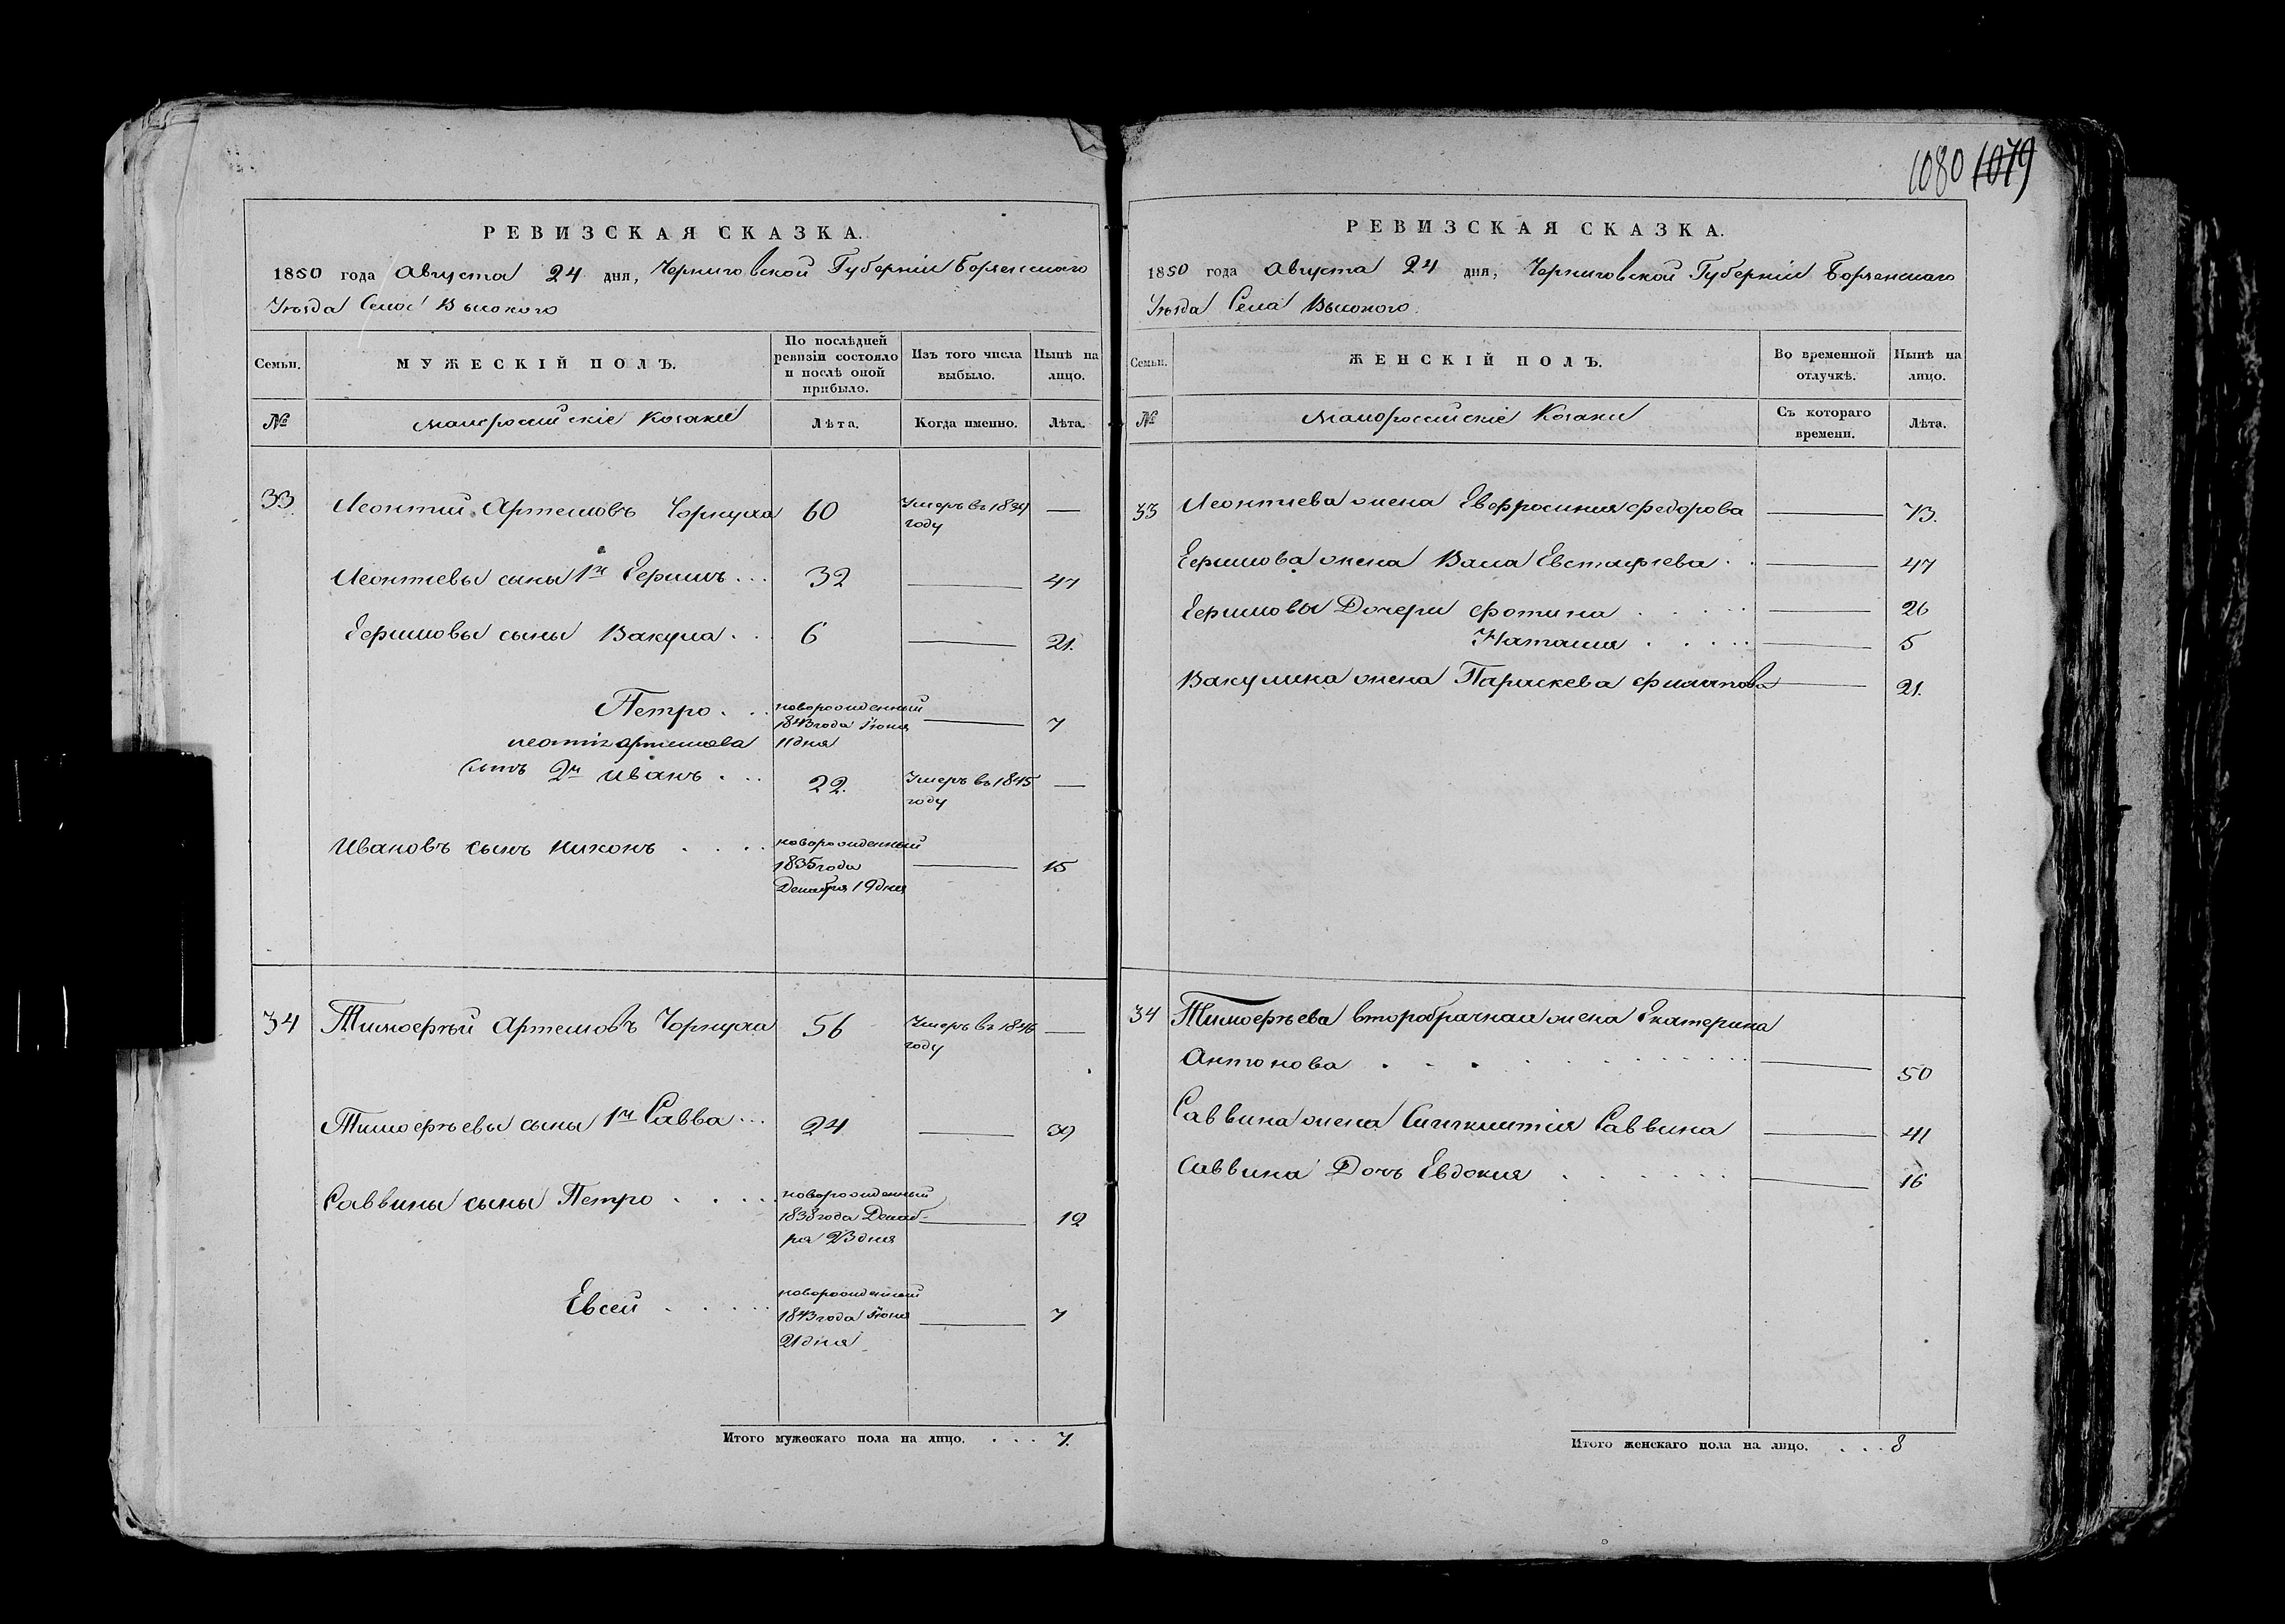 1080 1079
РЕВИЗСКАЯ СКАЗКА.
1850 года Августа 24 дня, Черниговской Губерніи Борзенскаго
Уѣзда Села Высокого
Семьи.
МУЖЕСКІЙ ПОЛЪ.
По послѣдней ревизіи состояло и послѣ оной прибыло.
Изъ того числа выбыло.
Нынѣ на лицо.
№
Малороссійскіе Козаки
Лѣта.
Когда именно.
Лѣта.
33 Леонтий Артемовъ Чорнуха 60 Умеръ въ 1839 году —
Леонтіевы сыны 1й Ефимъ . . . 32 — 47
Ефимовы сыны Вакула . . 6 — 21.
Петро . . новорожденный 1843 года Іюня 11 дня — 7
Артемова
сынъ 2й Иванъ . . . 22. Умеръ въ 1845 году —
Ивановъ сынъ Никонъ . . . . новорожденный 1835 года Декабря 19 дня — 15
34 Тимофѣй Артемовъ Чорнуха 56 Умеръ въ 1846 году —
Тимофѣевы сыны 1й Савва . . . 24 — 39
Саввины сыны Петро . . . . новорожденный 1838 года Декабря 23 дня — 12
Евсей . . . . . новорожденный 1843 года Іюня 21 дня — 7
Итого мужескаго пола на лицо. . . . 7.
РЕВИЗСКАЯ СКАЗКА.
1850 года Августа 24 дня, Черниговской Губерніи Борзенскаго
Уѣзда Села Высокого.
Семьи.
ЖЕНСКІЙ ПОЛЪ.
Во временной отлучкѣ.
Нынѣ на лицо.
№
Малороссійскіе Козаки
Съ котораго времени.
Лѣта.
33 Леонтіева жена Евфросинія Федорова — 73.
Ефимова жена Васа Евстафіева . . — 47
Ефимовы Дочери Фотина . . . . . — 26
Наталія . . . . . — 5
Вакулина жена Параскева Филипова — 21.
34 Тимофѣева второбрачная жена Екатерина
Антонова . . . . . . . . — 50
Саввина жена Саввина — 41
Саввина Дочь Евдокия . . . . . . — 16
Итого женскаго пола на лицо. . . . 8